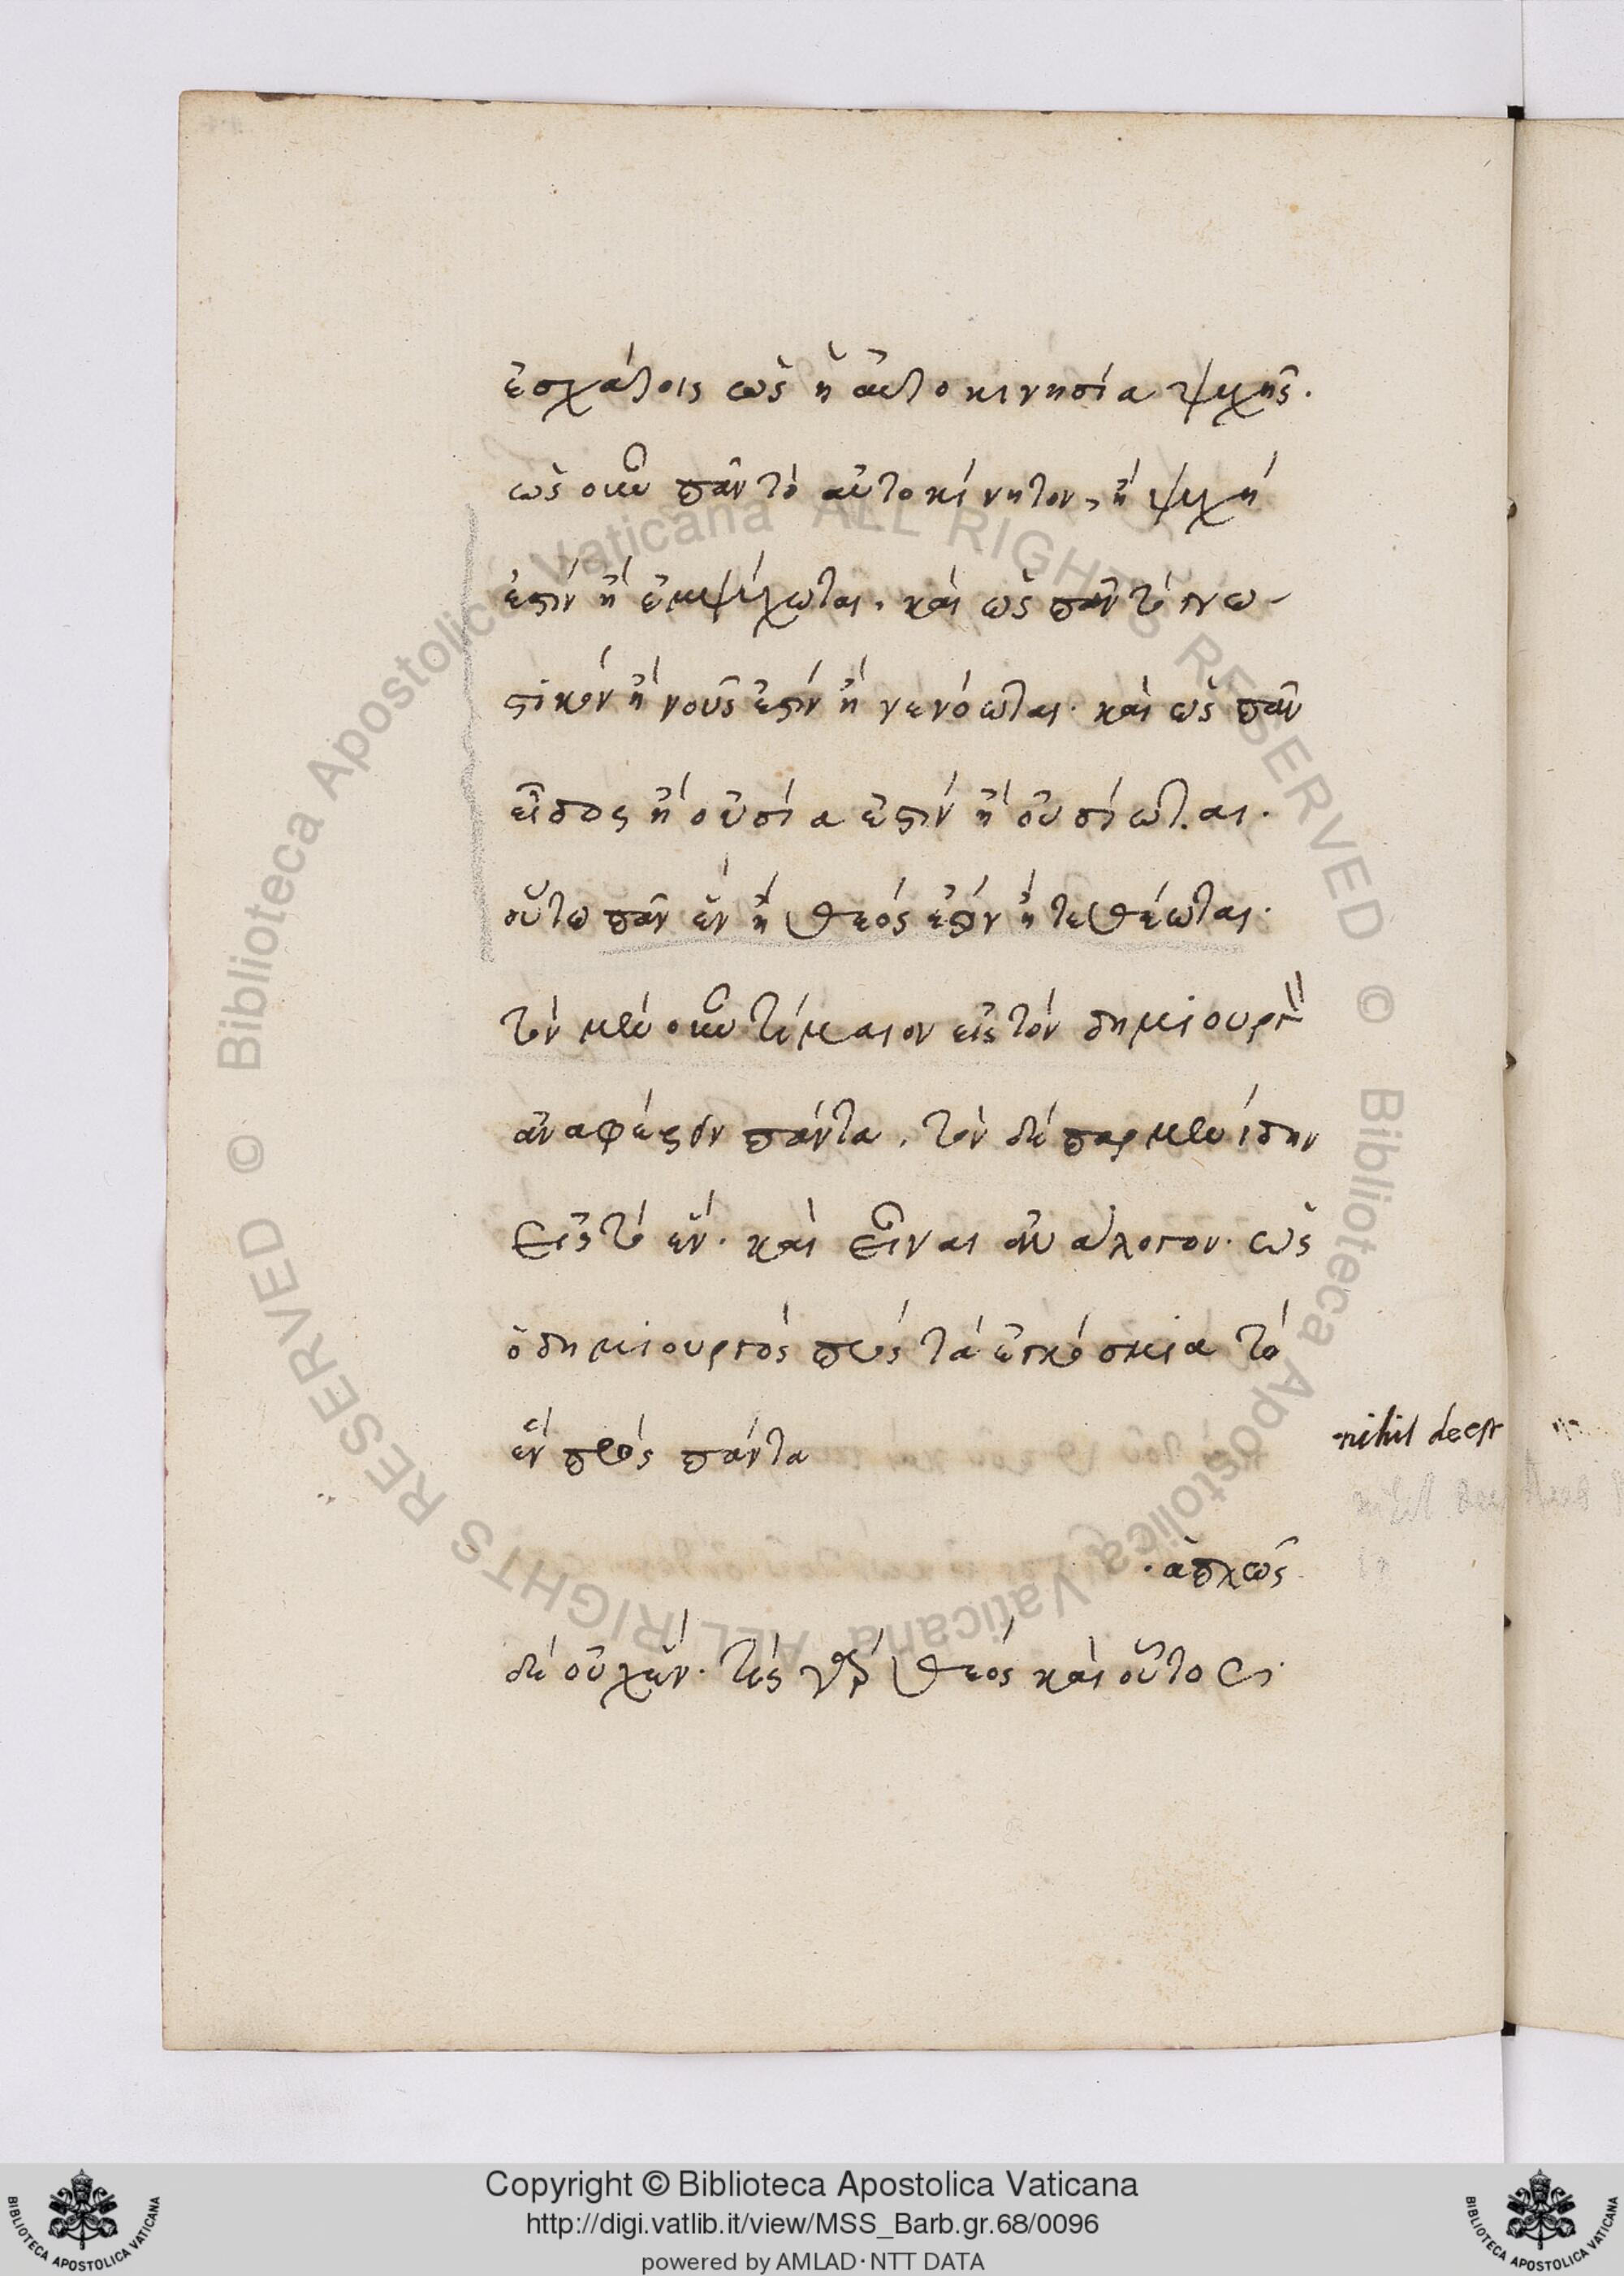 ἐσχάτοις ὡς ἡ αὐτοκινησία ψυχῆς.
ὡς οὖν πᾶν τὸ αὐτοκίνητον, ἢ ψυχή
ἐστιν ἢ ἐμψύχωται. καὶ ὡς πᾶν τὸ γνω-
στικὸν ἢ νοῦς ἐστὶν ἢ νενόωται. καὶ ὡς πᾶν
εἶδος ἢ οὐσία ἐστὶν ἢ οὐσίωται.
οὕτω πᾶν ἓν ἢ θεός ἐστὶν ἢ τεθέωται.
τὸν μὲν οὖν τίμαιον εἰς τὸν δημιουργ
ἀναφέρειν πάντα, τὸν δὲ παρμενίδην
εἰς τὸ ἕν. καὶ εἶναι ἀνάλογον. ὡς
ὁ δημιουργὸς πρὸς τὰ ἐγκόσμια τὸ
ἓν πρὸς πάντα
nihil deest
. ἁπλῶς
δὲ οὐχ ἕν. τὶς γὰρ θεός καὶ οὗτος.
© Biblioteca Apostolica Vaticana ALL RIGHTS RESERVED © Biblioteca Apostolica Vaticana ALL RIGHTS RESERVED
Copyright © Biblioteca Apostolica Vaticana
http://digi.vatlib.it/view/MSS_Barb.gr.68/0096
powered by AMLAD·NTT DATA
BIBLIOTECA APOSTOLICA VATICANA
BIBLIOTECA APOSTOLICA VATICANA